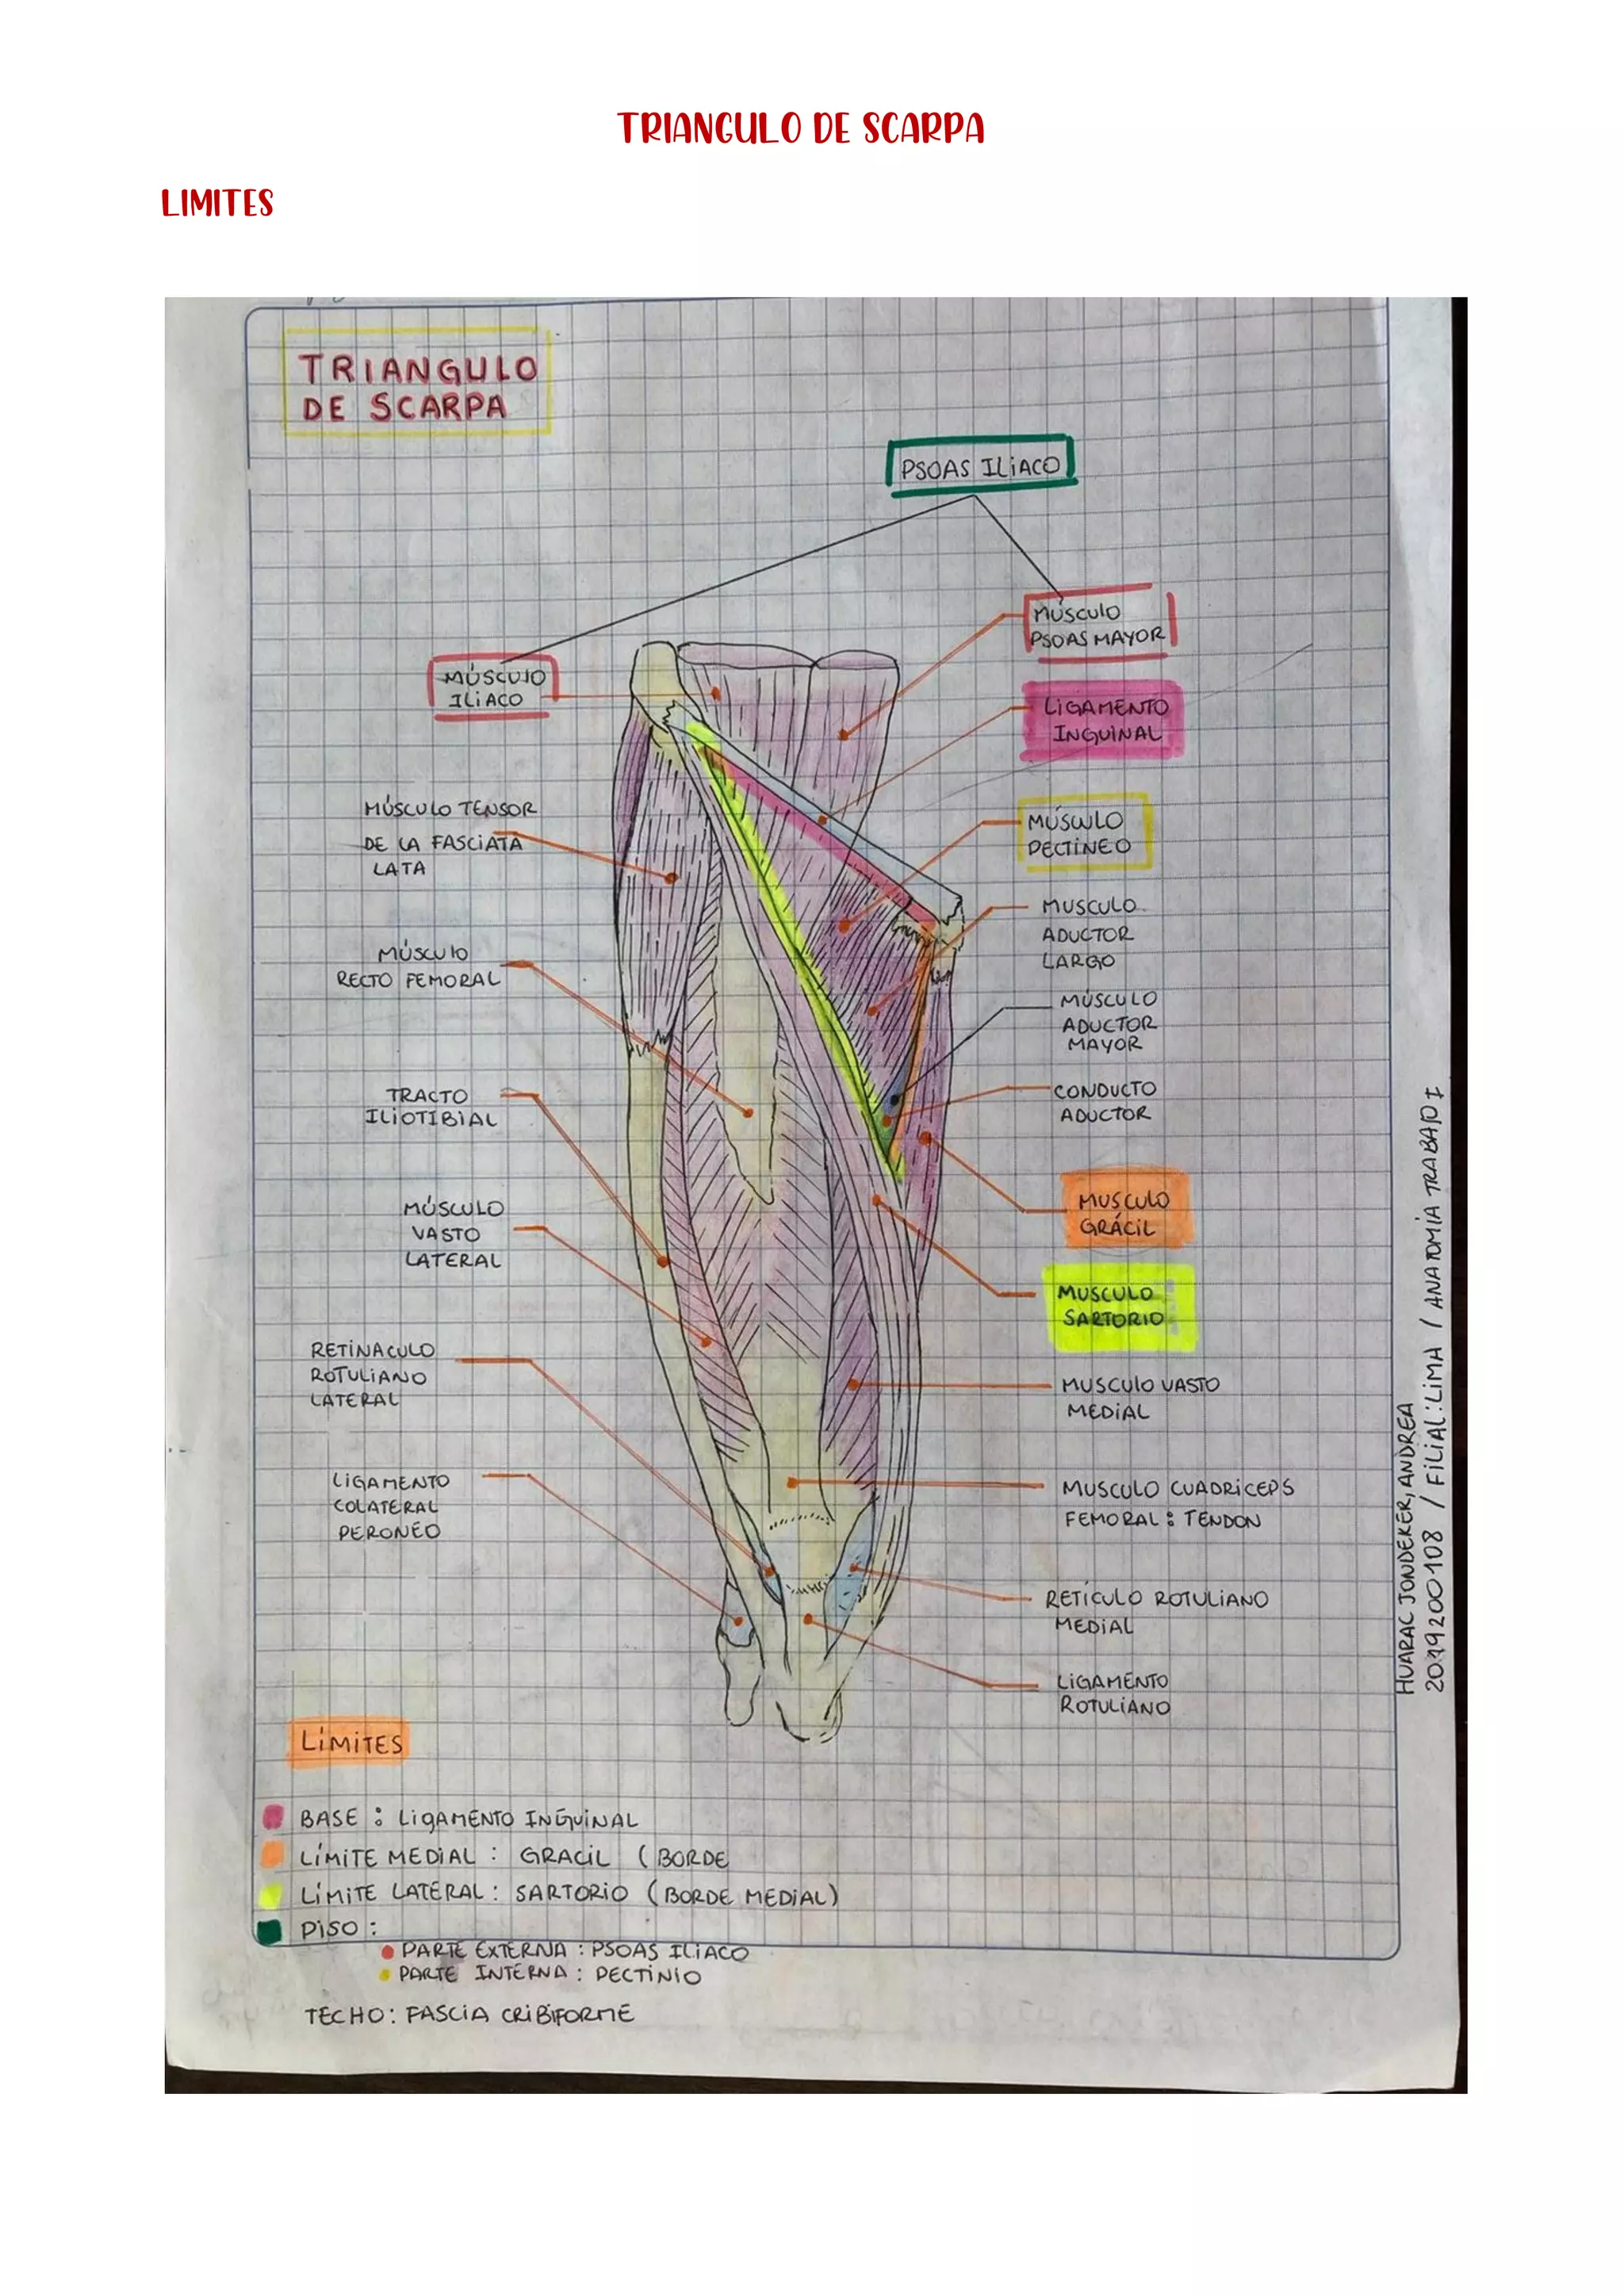 TRIANGULO DE SCARPA
LIMITES
TRIANGULO
DE SCARPA
PSOAS ILIACO
MÚSCULO
PSOAS MAYOR
MÚSCULO
ILIACO
LIGAMENTO
INGUINAL
MÚSCULO TENSOR
DE LA FASCIATA
LATA
MÚSCULO
PECTINEO
MUSCULO
ADUCTOR
LARGO
MÚSCULO
RECTO FEMORAL
MÚSCULO
ADUCTOR
MAYOR
TRACTO
ILIOTIBIAL
CONDUCTO
ADUCTOR
MÚSCULO
VASTO
LATERAL
MUSCULO
GRÁCIL
MUSCULO
SARTORIO
RETINACULO
ROTULIANO
LATERAL
MUSCULO VASTO
MEDIAL
LIGAMENTO
COLATERAL
PERONÉO
MUSCULO CUADRICEPS
FEMORAL: TENDON
RETÍCULO ROTULIANO
MEDIAL
LIGAMENTO
ROTULIANO
HUARAC JONDEKER, ANDREA
2019200108 / FILIAL: LIMA / ANATOMIA TRABAJO I
LÍMITES
BASE: LIGAMENTO INGUINAL
LÍMITE MEDIAL: GRACIL (BORDE
LÍMITE LATERAL: SARTORIO (BORDE MEDIAL)
PISO:
PARTE EXTERNA: PSOAS ILIACO
PARTE INTERNA: PECTINIO
TECHO: FASCIA CRIBIFORME